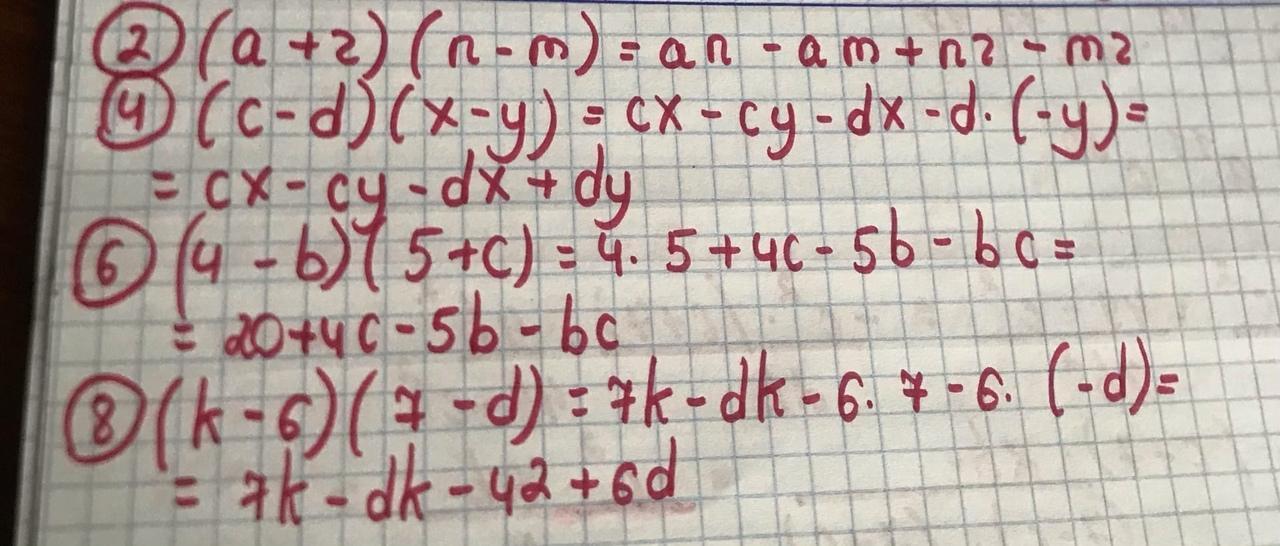 ② (a + z) (n - m) = an - am + nz - mz
④ (c - d) (x - y) = cx - cy - dx - d · (-y) =
= cx - cy - dx + dy
⑥ (4 - b) (5 + c) = 4 · 5 + 4c - 5b - bc =
= 20 + 4c - 5b - bc
⑧ (k - 6) (7 - d) = 7k - dk - 6 · 7 - 6 · (-d) =
= 7k - dk - 42 + 6d